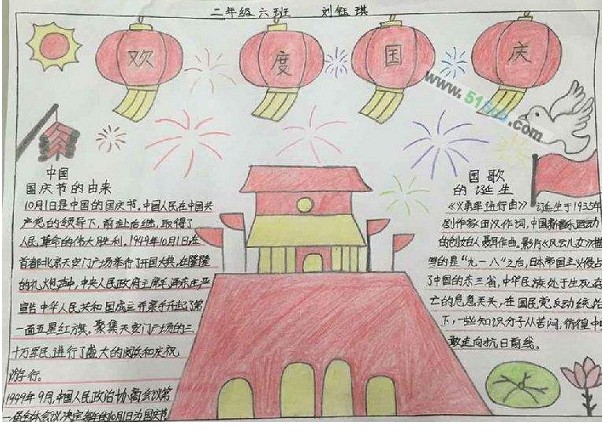 二年级六班 刘钰琪
欢度国庆
www.51
.com
中国
国庆节的由来
10月1日是中国的国庆节,中国人民在中国共
产党的领导下,前赴后继,取得了
人民革命的伟大胜利,1949年10月1日,在
首都北京天安门广场举行了开国大典,在隆隆
的礼炮声中,中央人民政府主席毛泽东庄严
宣告中华人民共和国成立并亲手升起了第
一面五星红旗,聚集天安门广场的三
十万军民,进行了盛大的阅兵和庆祝
游行。
1949年9月,中国人民政治协商会议第
一届全体会议决定每年10月1日为国庆节
国歌
的诞生
《义勇军进行曲》诞生于1935年
剧作家田汉作词,中国新音乐运动
的创始人聂耳作曲,影片《风云儿女》
的是"九一八"之后,日本帝国主义侵占
了中国的东三省,中华民族处于生死存
亡的危急关头,在国民党反动统治
下,一些知识分子从苦闷、彷徨中
敢走向抗日前线。